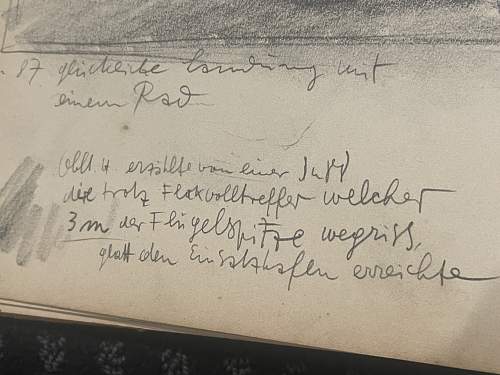 87 glückliche Landung mit
einem Rad
Oblt. H. erzählte von einer Ju 88
die trotz Flakvolltreffer welcher
3 m der Flügelspitze wegriss,
glatt den Einsatzhafen erreichte